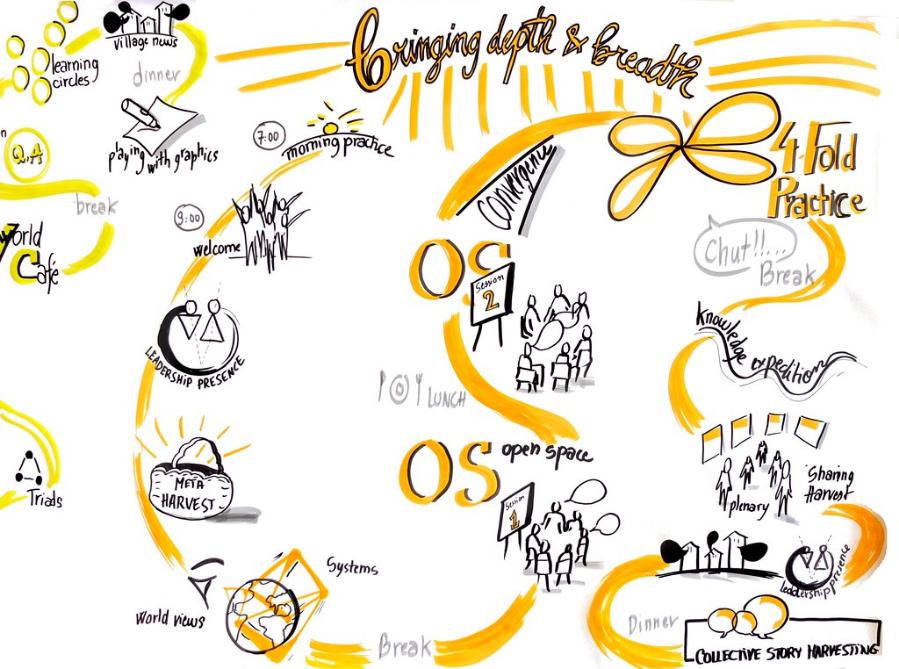 Bringing depth & breadth
village news
learning circles
dinner
playing with graphics
Q.A
break
World Café
Triads
7:00
morning practice
9:00
welcome
LEADERSHIP PRESENCE
META
HARVEST
World views
Systems
Break
OS open space
Session
1
LUNCH
OS
Session
2
Convergence
4 Fold
Practice
Chut!!....
Break
knowledge expedition
plenary
Sharing
Harvest
Leadership presence
Dinner
COLLECTIVE STORY HARVESTING